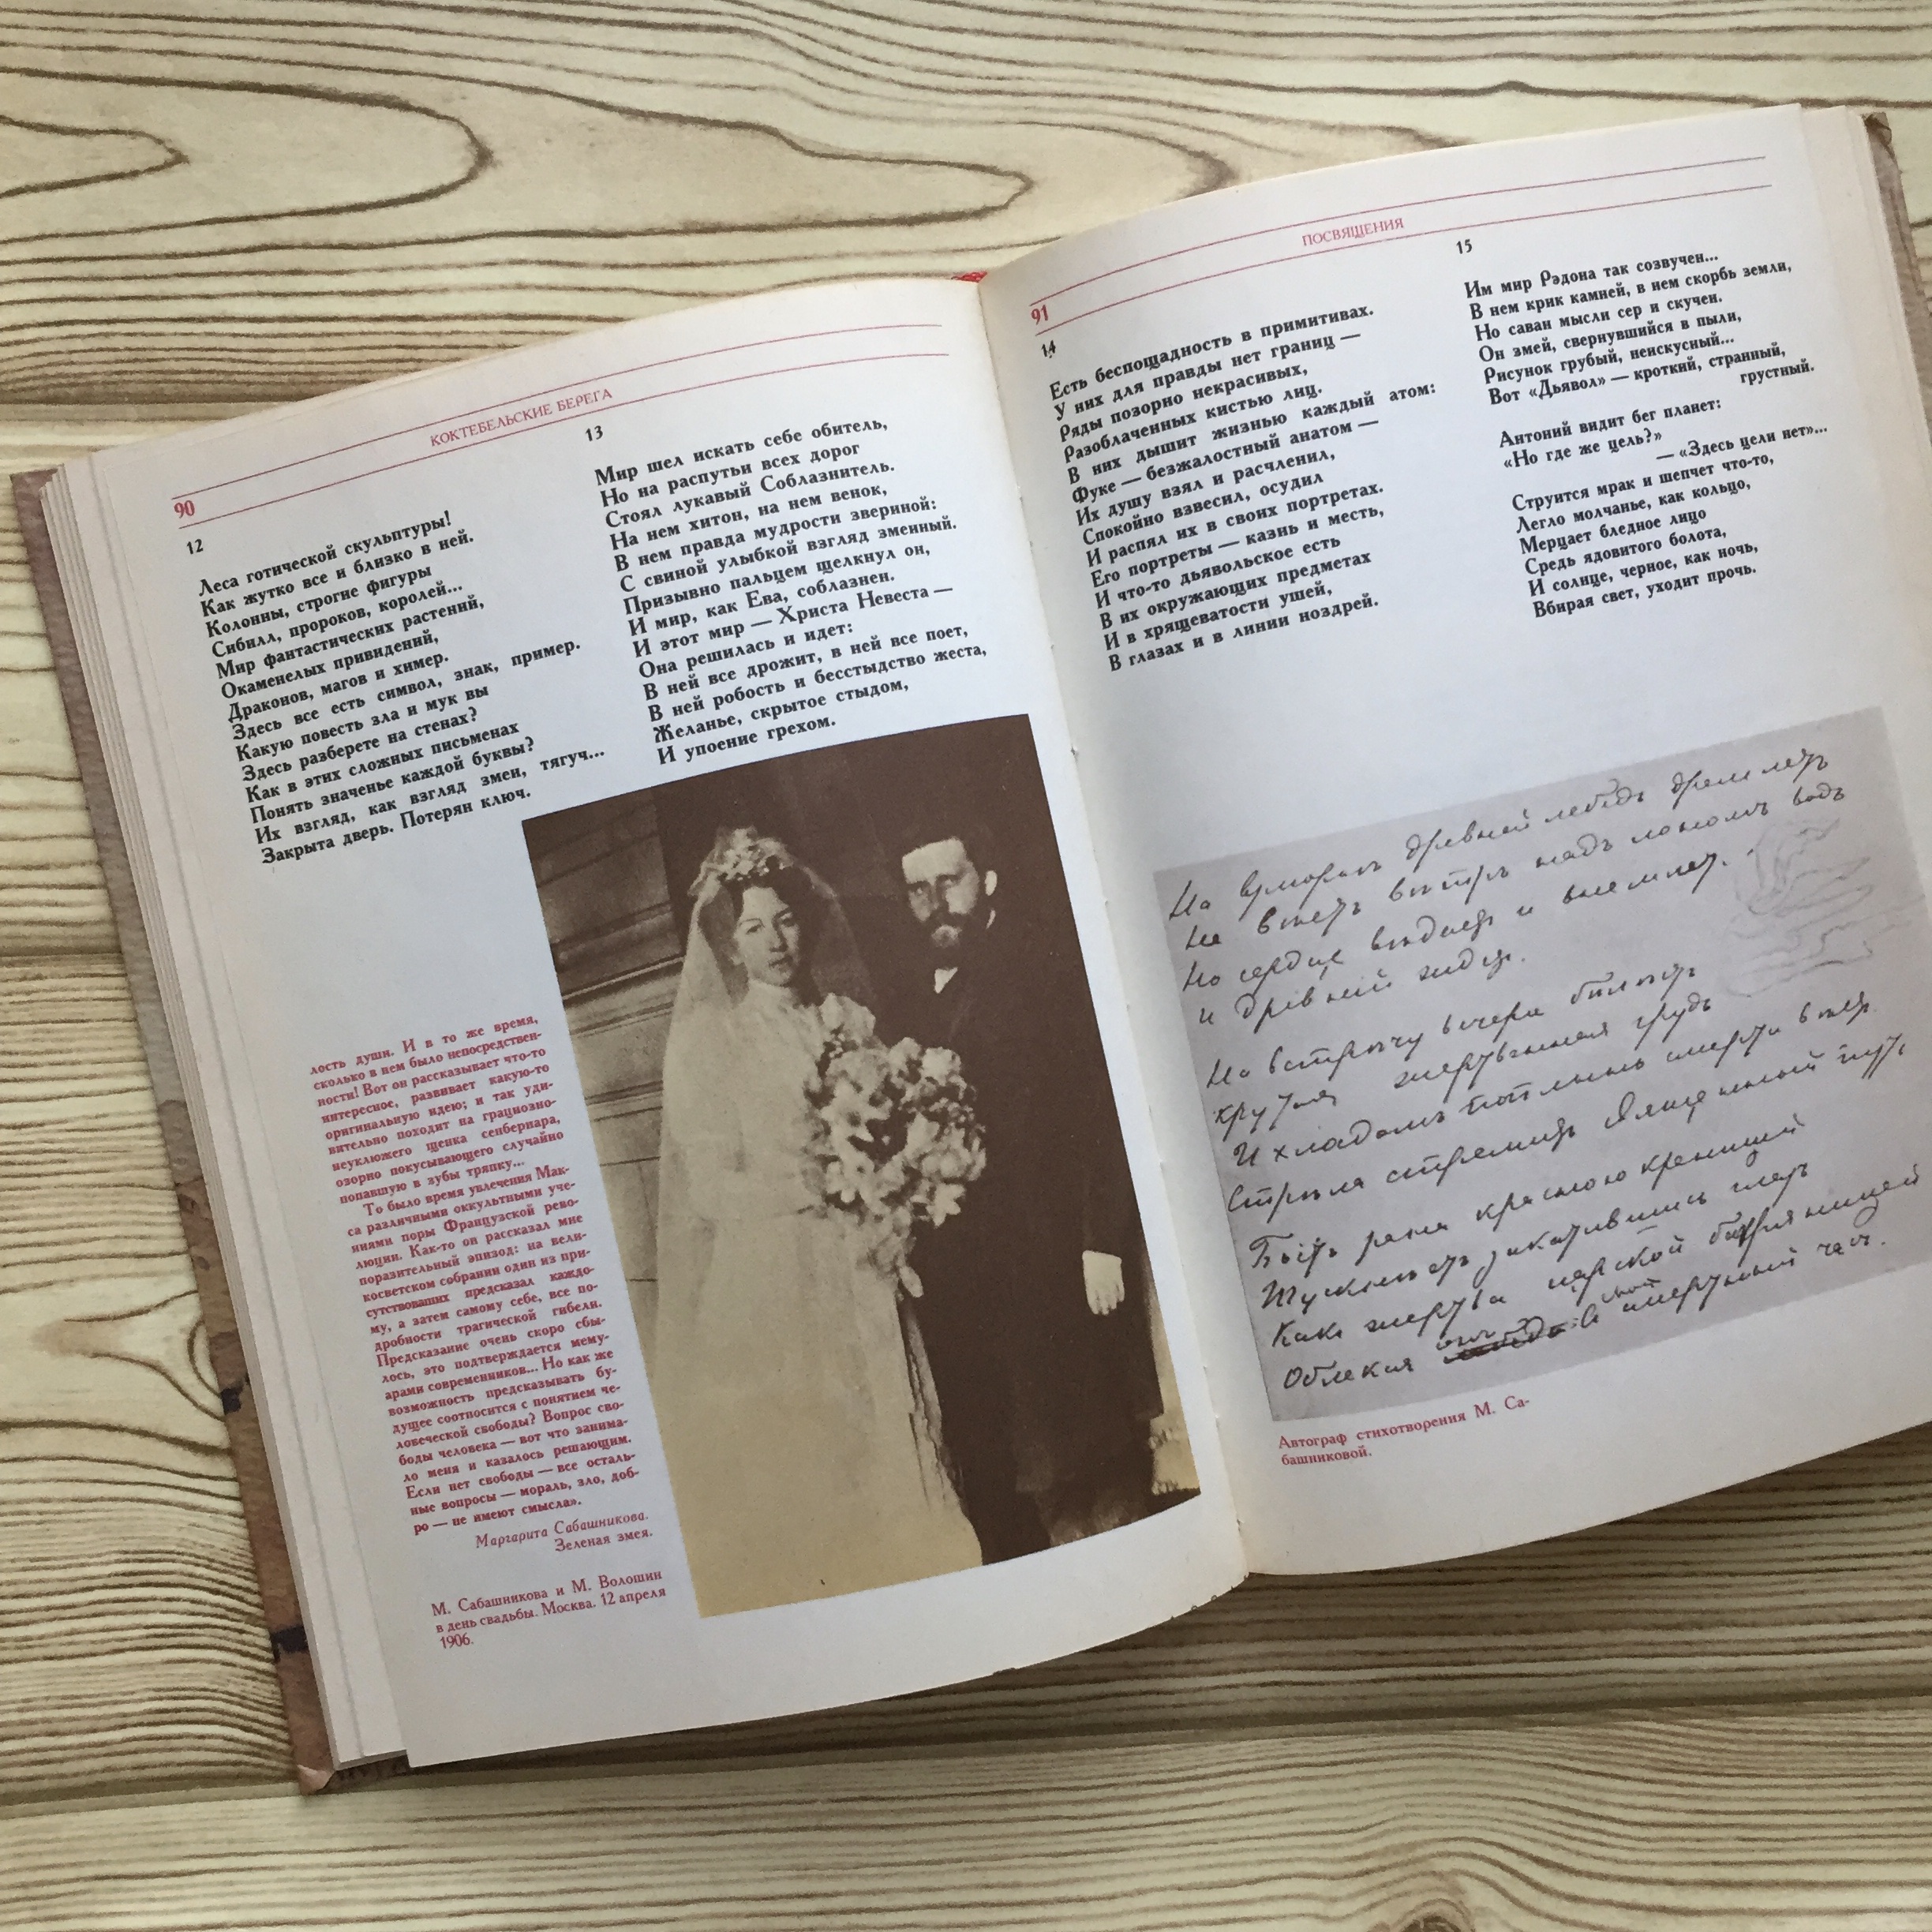 90
КОКТЕБЕЛЬСКИЕ БЕРЕГА
12
Леса готической скульптуры!
Как жутко все и близко в ней.
Колонны, строгие фигуры
Сибилл, пророков, королей...
Мир фантастических растений,
Окаменелых привидений,
Драконов, магов и химер.
Здесь все есть символ, знак, пример.
Какую повесть зла и мук вы
Здесь разберете на стенах?
Как в этих сложных письменах
Понять значенье каждой буквы?
Их взгляд, как взгляд змеи, тягуч...
Закрыта дверь. Потерян ключ.
13
Мир шел искать себе обитель,
Но на распутьи всех дорог
Стоял лукавый Соблазнитель.
На нем хитон, на нем венок,
В нем правда мудрости звериной:
С свиной улыбкой взгляд змеиный.
Призывно пальцем щелкнул он,
И мир, как Ева, соблазнен.
И этот мир — Христа Невеста —
Она решилась и идет:
В ней все дрожит, в ней все поет,
В ней робость и бесстыдство жеста,
Желанье, скрытое стыдом,
И упоение грехом.
лость души. И в то же время,
сколько в нем было непосредствен-
ности! Вот он рассказывает что-то
интересное, развивает какую-то
оригинальную идею; и так уди-
вительно походит на грациозно-
неуклюжего щенка сенбернара,
озорно покусывающего случайно
попавшую в зубы тряпку...
То было время увлечения Мак-
са различными оккультными уче-
ниями поры Французской рево-
люции. Как-то он рассказал мне
поразительный эпизод: на вели-
косветском собрании один из при-
сутствовавших предсказал каждо-
му, а затем самому себе, все по-
дробности трагической гибели.
Предсказание очень скоро сбы-
лось, это подтверждается мему-
арами современников... Но как же
возможность предсказывать бу-
дущее соотносится с понятием че-
ловеческой свободы? Вопрос сво-
боды человека — вот что занима-
ло меня и казалось решающим.
Если нет свободы — все осталь-
ные вопросы — мораль, зло, доб-
ро — не имеют смысла».
Маргарита Сабашникова.
Зеленая змея.
М. Сабашникова и М. Волошин
в день свадьбы. Москва. 12 апреля
1906.
91
ПОСВЯЩЕНИЯ
14
Есть беспощадность в примитивах.
У них для правды нет границ —
Ряды позорно некрасивых,
Разоблаченных кистью лиц.
В них дышит жизнью каждый атом:
Фуке — безжалостный анатом —
Их душу взял и расчленил,
Спокойно взвесил, осудил
И распял их в своих портретах.
Его портреты — казнь и месть,
И что-то дьявольское есть
В их окружающих предметах
И в хрящеватости ушей,
В глазах и в линии ноздрей.
15
Им мир Рэдона так созвучен...
В нем крик камней, в нем скорбь земли,
Но саван мысли сер и скучен.
Он змей, свернувшийся в пыли,
Рисунок грубый, неискусный...
Вот «Дьявол» — кроткий, странный,
грустный.
Антоний видит бег планет:
«Но где же цель?»
— «Здесь цели нет»...
Струится мрак и шепчет что-то,
Легло молчанье, как кольцо,
Мерцает бледное лицо
Средь ядовитого болота,
И солнце, черное, как ночь,
Вбирая свет, уходит прочь.
На взморьѣ древній лебедь дремлетъ
Не вѣетъ вѣтръ надъ лономъ водъ
Но сердце и внемлетъ.
и древній
На встрѣчу вечера
жертвенная грудь
И хладомъ смерти
Стрѣла стремитъ священный путь
Быть рана красною
закатившись глазъ
Какъ жертва царской багряницей
Облекая въ смертный часъ.
Автограф стихотворения М. Са-
башниковой.